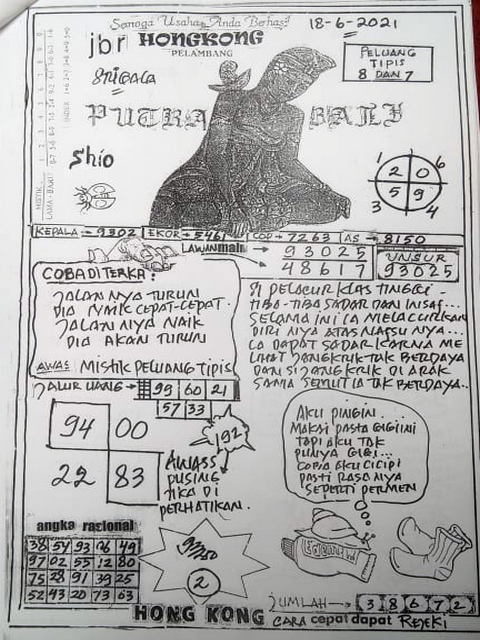 Semoga Usaha Anda Berhasil
18-6-2021
jbr HONGKONG
PELAMBANG
SRIGALA
PELUANG
TIPIS
8 DAN 7
PUTRA BALI
Shio
1 6
2 0
5 9
3 4
KEPALA → 9302 EKOR → 5461 COP → 7263 AS → 8150
LAWAN main → 93025
48617
UNSUR
93025
COBA DITERKA:
JALAN NYA TURUN
DIA NAIK CEPAT-CEPAT.
JALAN NYA NAIK
DIA AKAN TURUN
AWAS: MISTIK PELUANG TIPIS
SI PELACUR KLAS TINGGI.
TIBA-TIBA SADAR DAN INSAF...
SELAMA INI IA MELACURKAN
DIRI NYA ATAS NAFSU NYA...
IA DAPAT SADAR KARNA ME
LIHAT JANGKRIK TAK BERDAYA
DAN SI JANGKRIK DI ARAK
SAMA SEMUT IA TAK BERDAYA..
JALUR UANG → 99 60 21
57 33
192
94 00
22 83
AWASS
PUSING
JIKA DI
PERHATIKAN.
AKU PINGIN
MAKAI PASTA GIGI INI
TAPI AKU TAK
PUNYA GIGI...
COBA AKU CICIPI
PASTI RASA NYA
SEPERTI PERMEN
angka rasional
38 54 93 96 49
97 02 55 12 80
75 28 91 39 25
52 43 20 73 63
2
JUMLAH → 3 8 6 7 2
HONG KONG CARA cepat dapat REJEKI